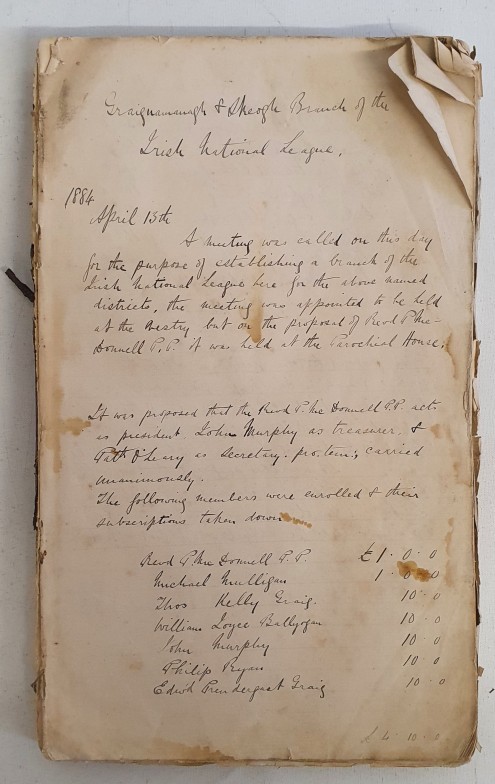 Graignamanagh & Skeogh Branch of the
Irish National League.
1884
April 13th
A meeting was called on this day
for the purpose of establishing a branch of the
Irish National League here for the above named
districts, the meeting was appointed to be held
at the Vestry but on the proposal of Revd P. Mc-
Donnell P.P. it was held at the Parochial House.
It was proposed that the Revd P. Mc Donnell P.P. acts
as president, John Murphy as treasurer, &
Patk O'Leary as Secretary. pro. tem; carried
unanimously.
The following members were enrolled & their
subscriptions taken down
Revd P. Mc Donnell P.P. £1 . 0 . 0
Michael Mulligan 1 . 0 . 0
Thos Kelly Graig. 10 . 0
William Joyce Ballyogan 10 . 0
John Murphy 10 . 0
Philip Ryan 10 . 0
Edwd Prendergast Graig 10 . 0
£ 4 . 10 . 0